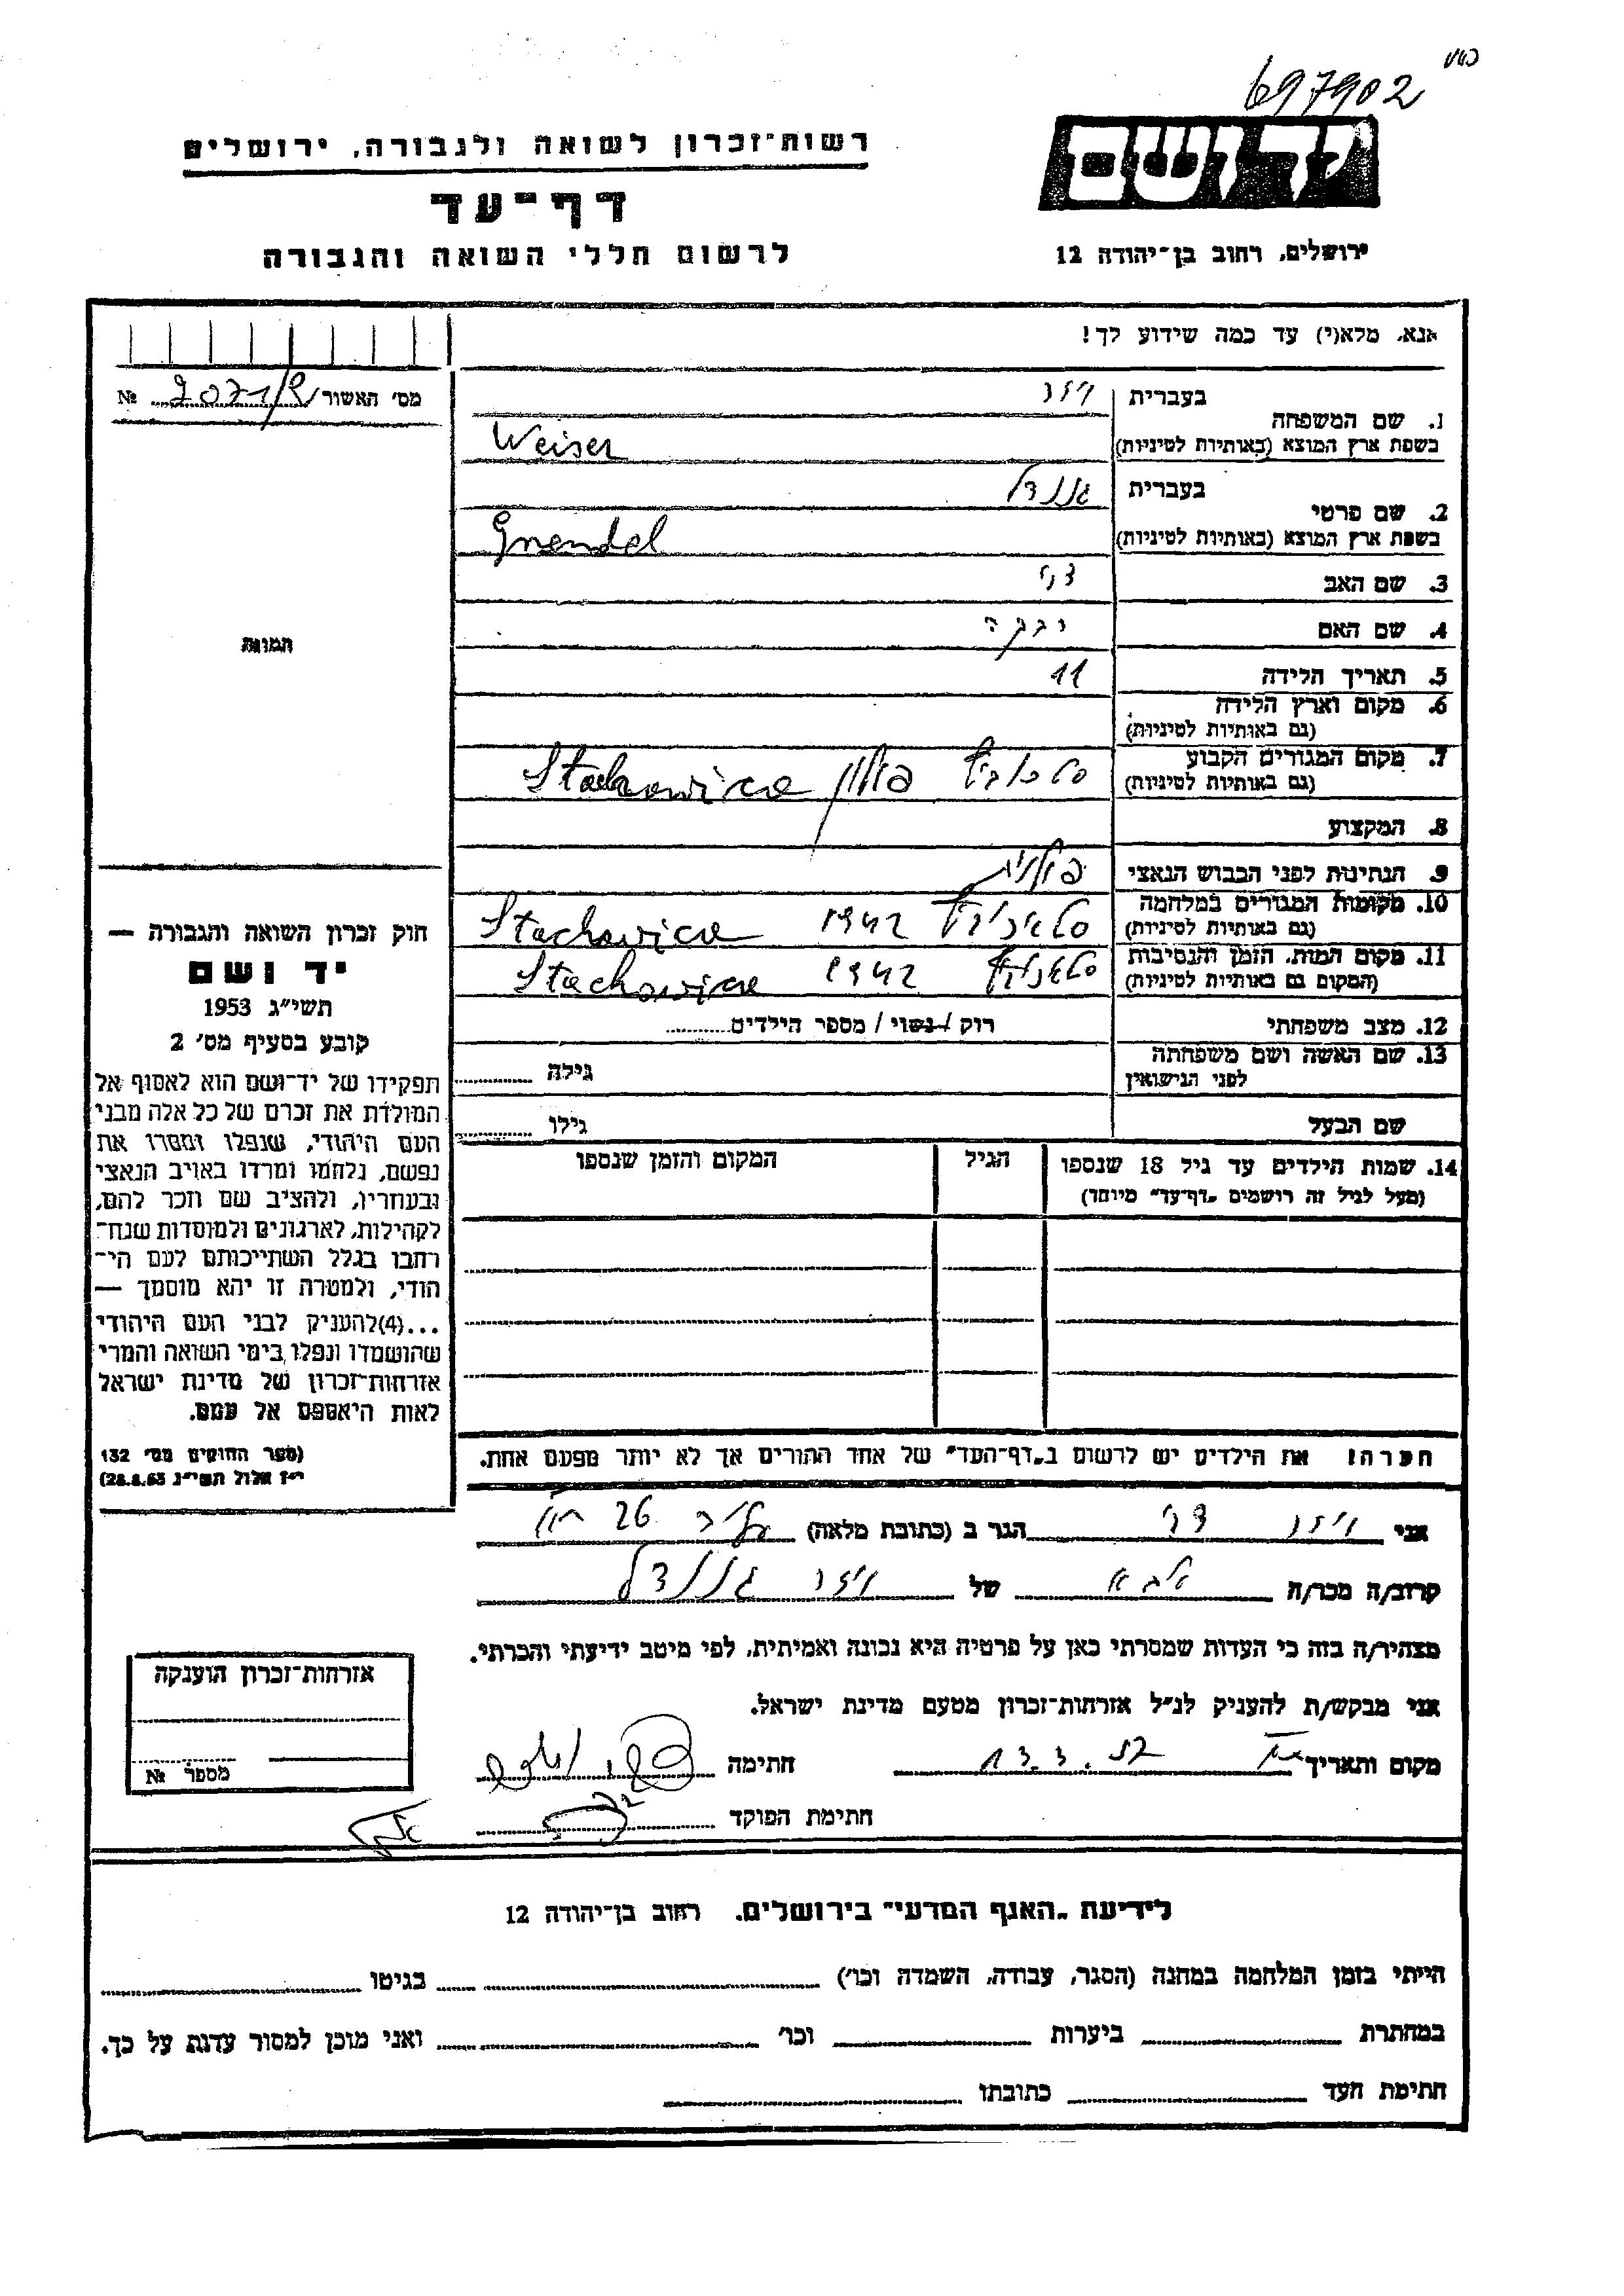 697902
רשות־זכרון לשואה ולגבורה, ירושלים
יד ושם
דף־עד
לרשום חללי השואה והגבורה
ירושלים, רחוב בן־יהודה 12
אנא, מלא(י) עד כמה שידוע לך!
מס' האשור № 2071/9
1. שם המשפחה
בעברית ויזר
בשפת ארץ המוצא (באותיות לטיניות) Weiser
2. שם פרטי
בעברית גננדל
בשפת ארץ המוצא (באותיות לטיניות) Gnendel
3. שם האב צבי
4. שם האם רבקה
5. תאריך הלידה 11
6. מקום וארץ הלידה
(גם באותיות לטיניות)
7. מקום המגורים הקבוע פולין Stachowice
(גם באותיות לטיניות)
8. המקצוע
9. הנתינות לפני הכבוש הנאצי פולנית
10. מקומות המגורים במלחמה 1942 Stachowice
(גם באותיות לטיניות)
11. מקום המות, הזמן והנסיבות 1942 Stachowice
(המקום גם באותיות לטיניות)
12. מצב משפחתי רוק / נשוי / מספר הילדים
13. שם האשה ושם משפחתה
לפני הנישואין
גילה
שם הבעל גילו
14. שמות הילדים עד גיל 18 שנספו
(מעל לגיל זה רושמים „דף־עד" מיוחד)
הגיל
המקום והזמן שנספו
הערה! את הילדים יש לרשום ב„דף־העד" של אחד ההורים אך לא יותר מפעם אחת.
תמונה
חוק זכרון השואה והגבורה —
יד ושם
תשי״ג 1953
קובע בסעיף מס' 2
תפקידו של יד־ושם הוא לאסוף אל
המולדת את זכרם של כל אלה מבני
העם היהודי, שנפלו ומסרו את
נפשם, נלחמו ומרדו באויב הנאצי
ובעוזריו, ולהציב שם וזכר להם,
לקהילות, לארגונים ולמוסדות שנח־
רבו בגלל השתייכותם לעם הי־
הודי, ולמטרה זו יהא מוסמך —
...(4)להעניק לבני העם היהודי
שהושמדו ונפלו בימי השואה והמרי
אזרחות־זכרון של מדינת ישראל
לאות היאספם אל עמם.
(ספר החוקים מס' 132
י״ז אלול תשי״ג 28.8.53)
אני ויזר צבי הגר ב (כתובת מלאה) 26
קרוב/ה מכר/ה אבא של ויזר גננדל
מצהיר/ה בזה כי העדות שמסרתי כאן על פרטיה היא נכונה ואמיתית, לפי מיטב ידיעתי והכרתי.
אני מבקש/ת להעניק לנ״ל אזרחות־זכרון מטעם מדינת ישראל.
מקום ותאריך 13.3.57 חתימה
חתימת הפוקד
אזרחות־זכרון הוענקה
מספר №
לידיעת „האגף המדעי" בירושלים, רחוב בן־יהודה 12
הייתי בזמן המלחמה במחנה (הסגר, עבודה, השמדה וכו') בגיטו
במחתרת ביערות וכו' ואני מוכן למסור עדות על כך.
חתימת העד כתובתו